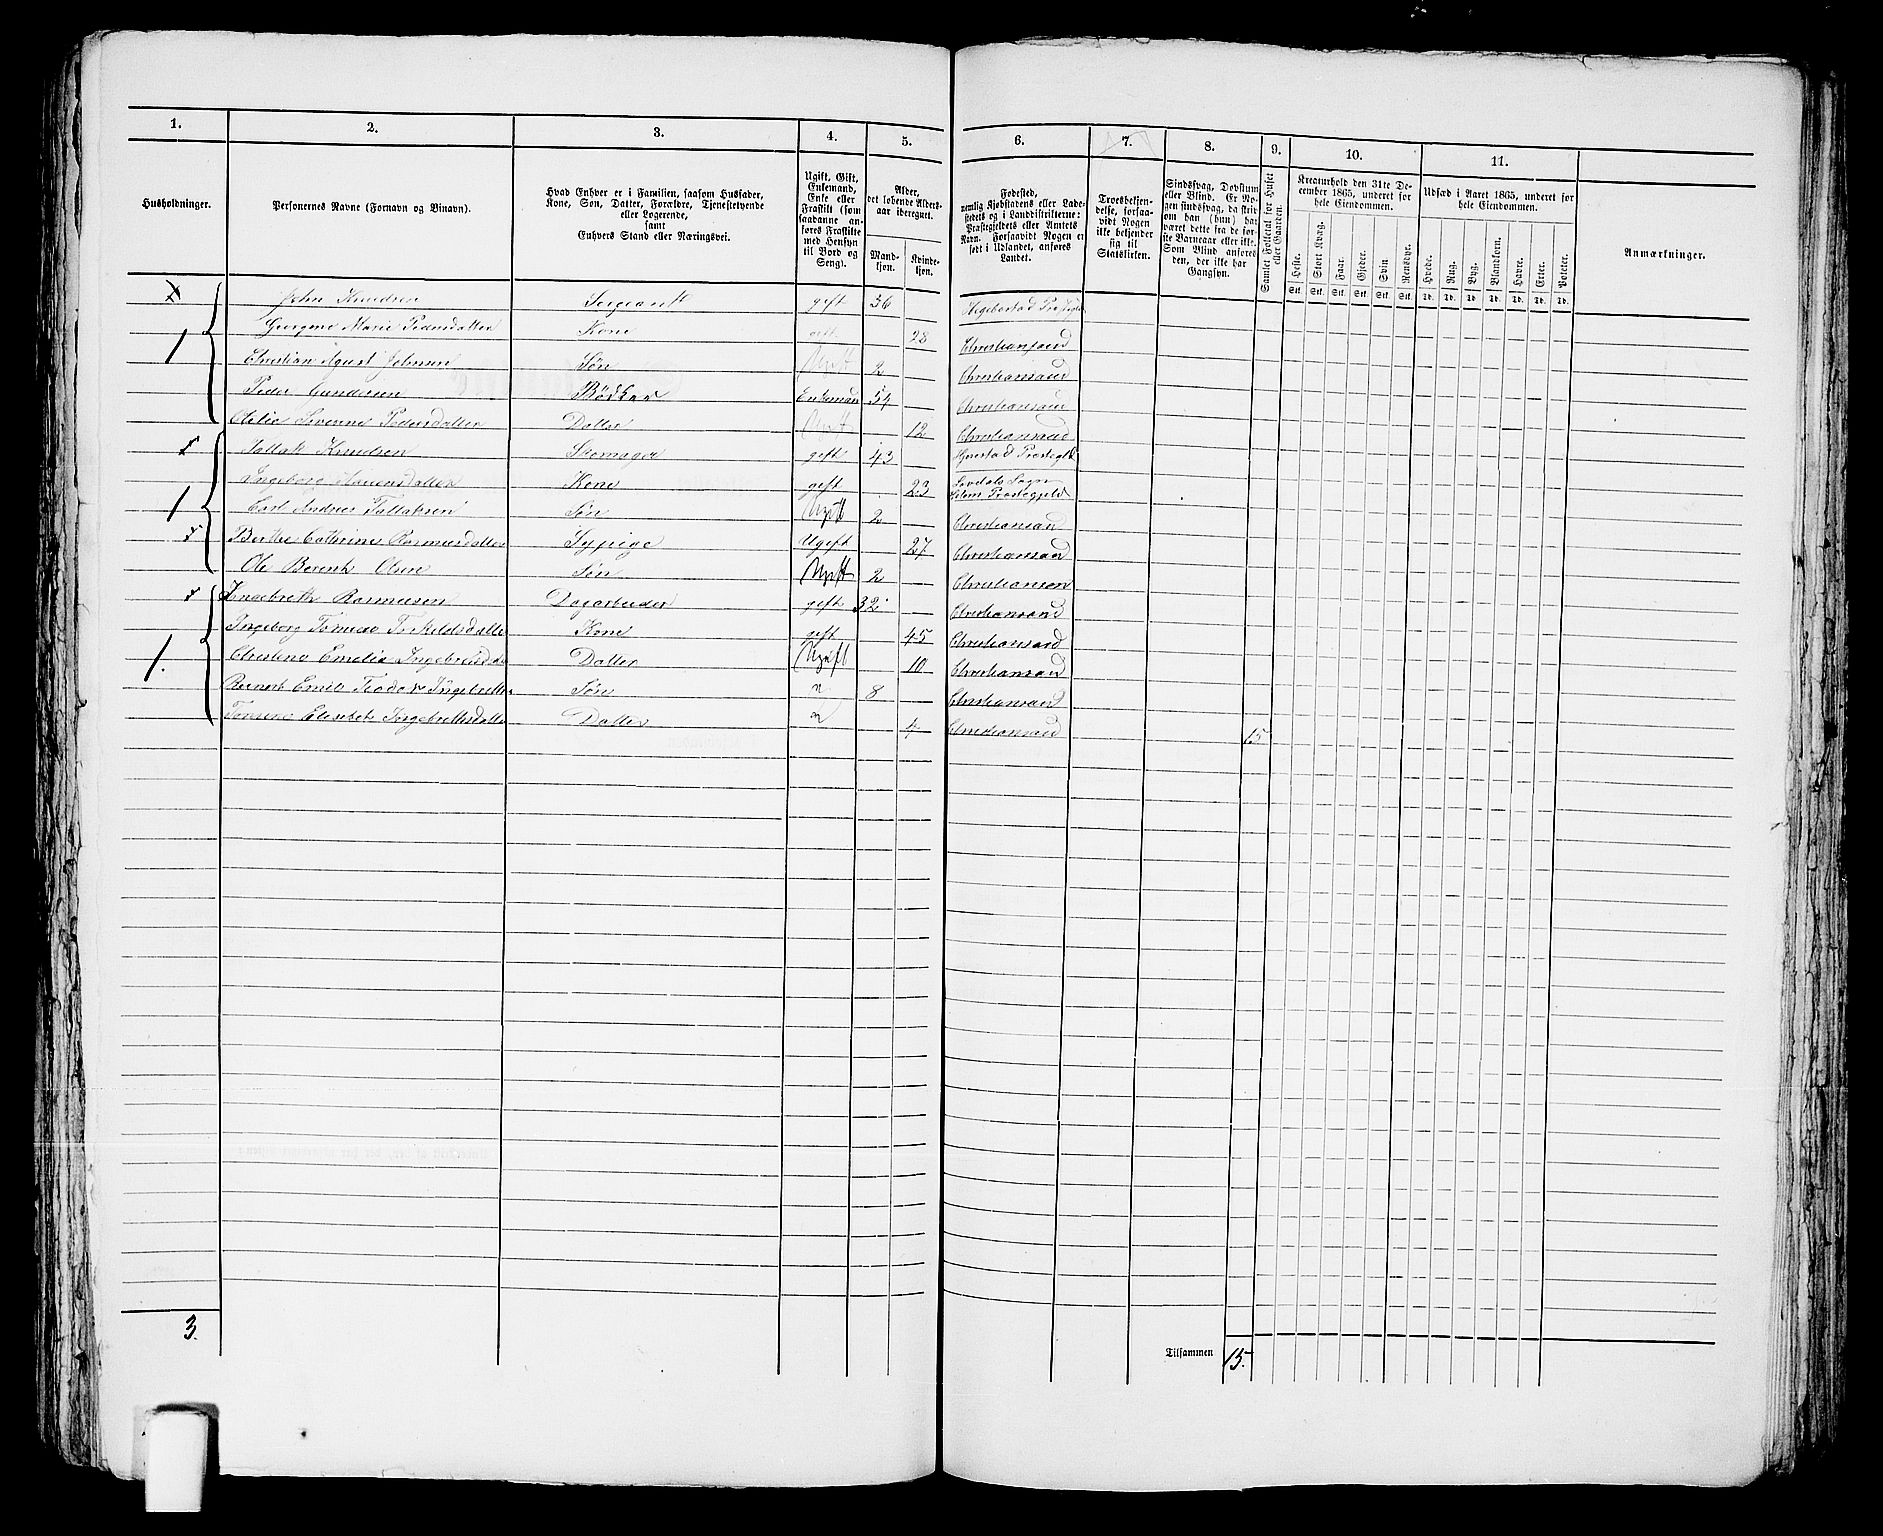 1. 2. 3. 4. 5. 6. 7. 8. 9. 10. 11.
Husholdninger.
Personernes Navne (Fornavn og Binavn).
Hvad Enhver er i Familien, saasom Husfader,
Kone, Søn, Datter, Forældre, Tjenestetyende
eller Logerende,
samt
Enhvers Stand eller Næringsvei.
Ugift, Gift,
Enkemand,
Enke eller
Fraskilt (som
saadanne an-
føres Fraskilte
med Hensyn
til Bord og
Seng).
Alder,
det løbende Alders-
aar iberegnet.
Mand-
kjøn.
Kvinde-
kjøn.
Fødested,
nemlig Kjøbstadens eller Lade-
stedets og i Landdistrikterne:
Præstegjeldets eller Amtets
Navn. Forsaavidt Nogen er
født i Udlandet, anføres
Landet.
Troesbekjen-
delse, forsaa-
vidt Nogen
ikke bekjender
sig til
Statskirken.
Sindssvag, Døvstum
eller Blind. Er No-
gen sindssvag, da skriv
om han (hun) har
været dette fra de før-
ste Barneaar eller ikke.
Som Blind anføres
den, der ikke har
Gangsyn.
Samlet Folketal for Huset
eller Gaarden.
Kreaturhold den 31te De-
cember 1865, underet for
hele Eiendommen.
Heste. Stort Kvæg. Faar. Gjeder. Svin Rensdyr.
Stk. Stk. Stk. Stk. Stk. Stk.
Udsæd i Aaret 1865, underet for
hele Eiendommen.
Hvede. Rug. Byg. Blandkorn. Havre. Erter. Poteter.
Td. Td. Td. Td. Td. Td. Td.
Anmærkninger.
John Knudsen Sergeant gift 36 Hegebostad
1 Georgene Marie Pedersdatter Kone gift 28 Christiansand
Christian Agust Johnsen Søn Ugift 2 Christiansand
Peder Gundersen Bødker Enkemand 54 Christiansand
Severine Pedersdatter Datter Ugift 12 Christiansand
Tallak Knudsen Skomager gift 43
Ingeborg Kone gift 23
1 Carl Andres Tallaksen Søn Ugift 2 Christiansand
Berthe Cathrine Rasmusdatter Sypige Ugift 27 Christiansand
Ole Berent Olsen Søn Ugift 2 Christiansan
Ingebreth Rasmusen Dagarbeider gift 32 Christiansand
Ingeborg Torkeldsdatter Kone gift 45 Christiansand
1. Christene Emelie Datter Ugift 10 Christiansand
Emil Teodor Søn " 8 Christiansand
Elisebet Ingebretsdatter Datter " 4 Christiansand 15
3. Tilsammen 15.